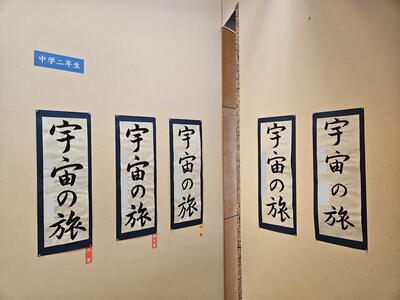 中学二年生
宇宙の旅
宇宙の旅
宇宙の旅
宇宙の旅
宇宙の旅